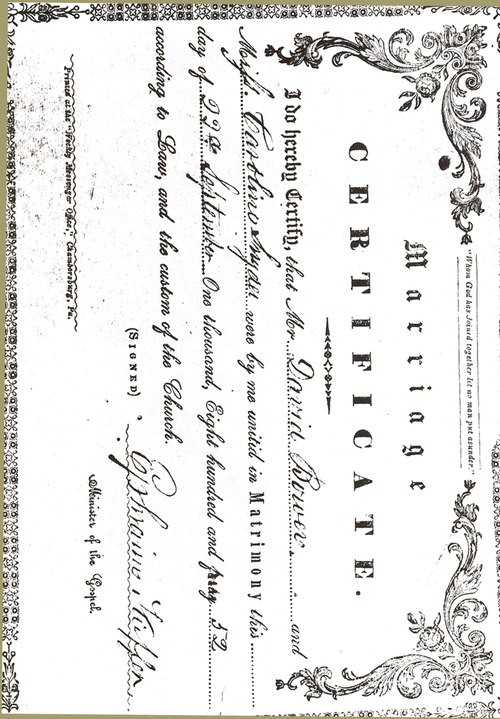 "Whom God has Joined together let no man put asunder."
Marriage
CERTIFICATE.
I do hereby Certify, that Mr. David Bower and
Miss Caroline Snyder were by me united in Matrimony this
day of 22d September One thousand, Eight hundred and forty 52
according to Law, and the custom of the Church.
(SIGNED) Ephraim
Minister of the Gospel.
Printed at the "Weekly Messenger Office," Chambersburg, Pa.